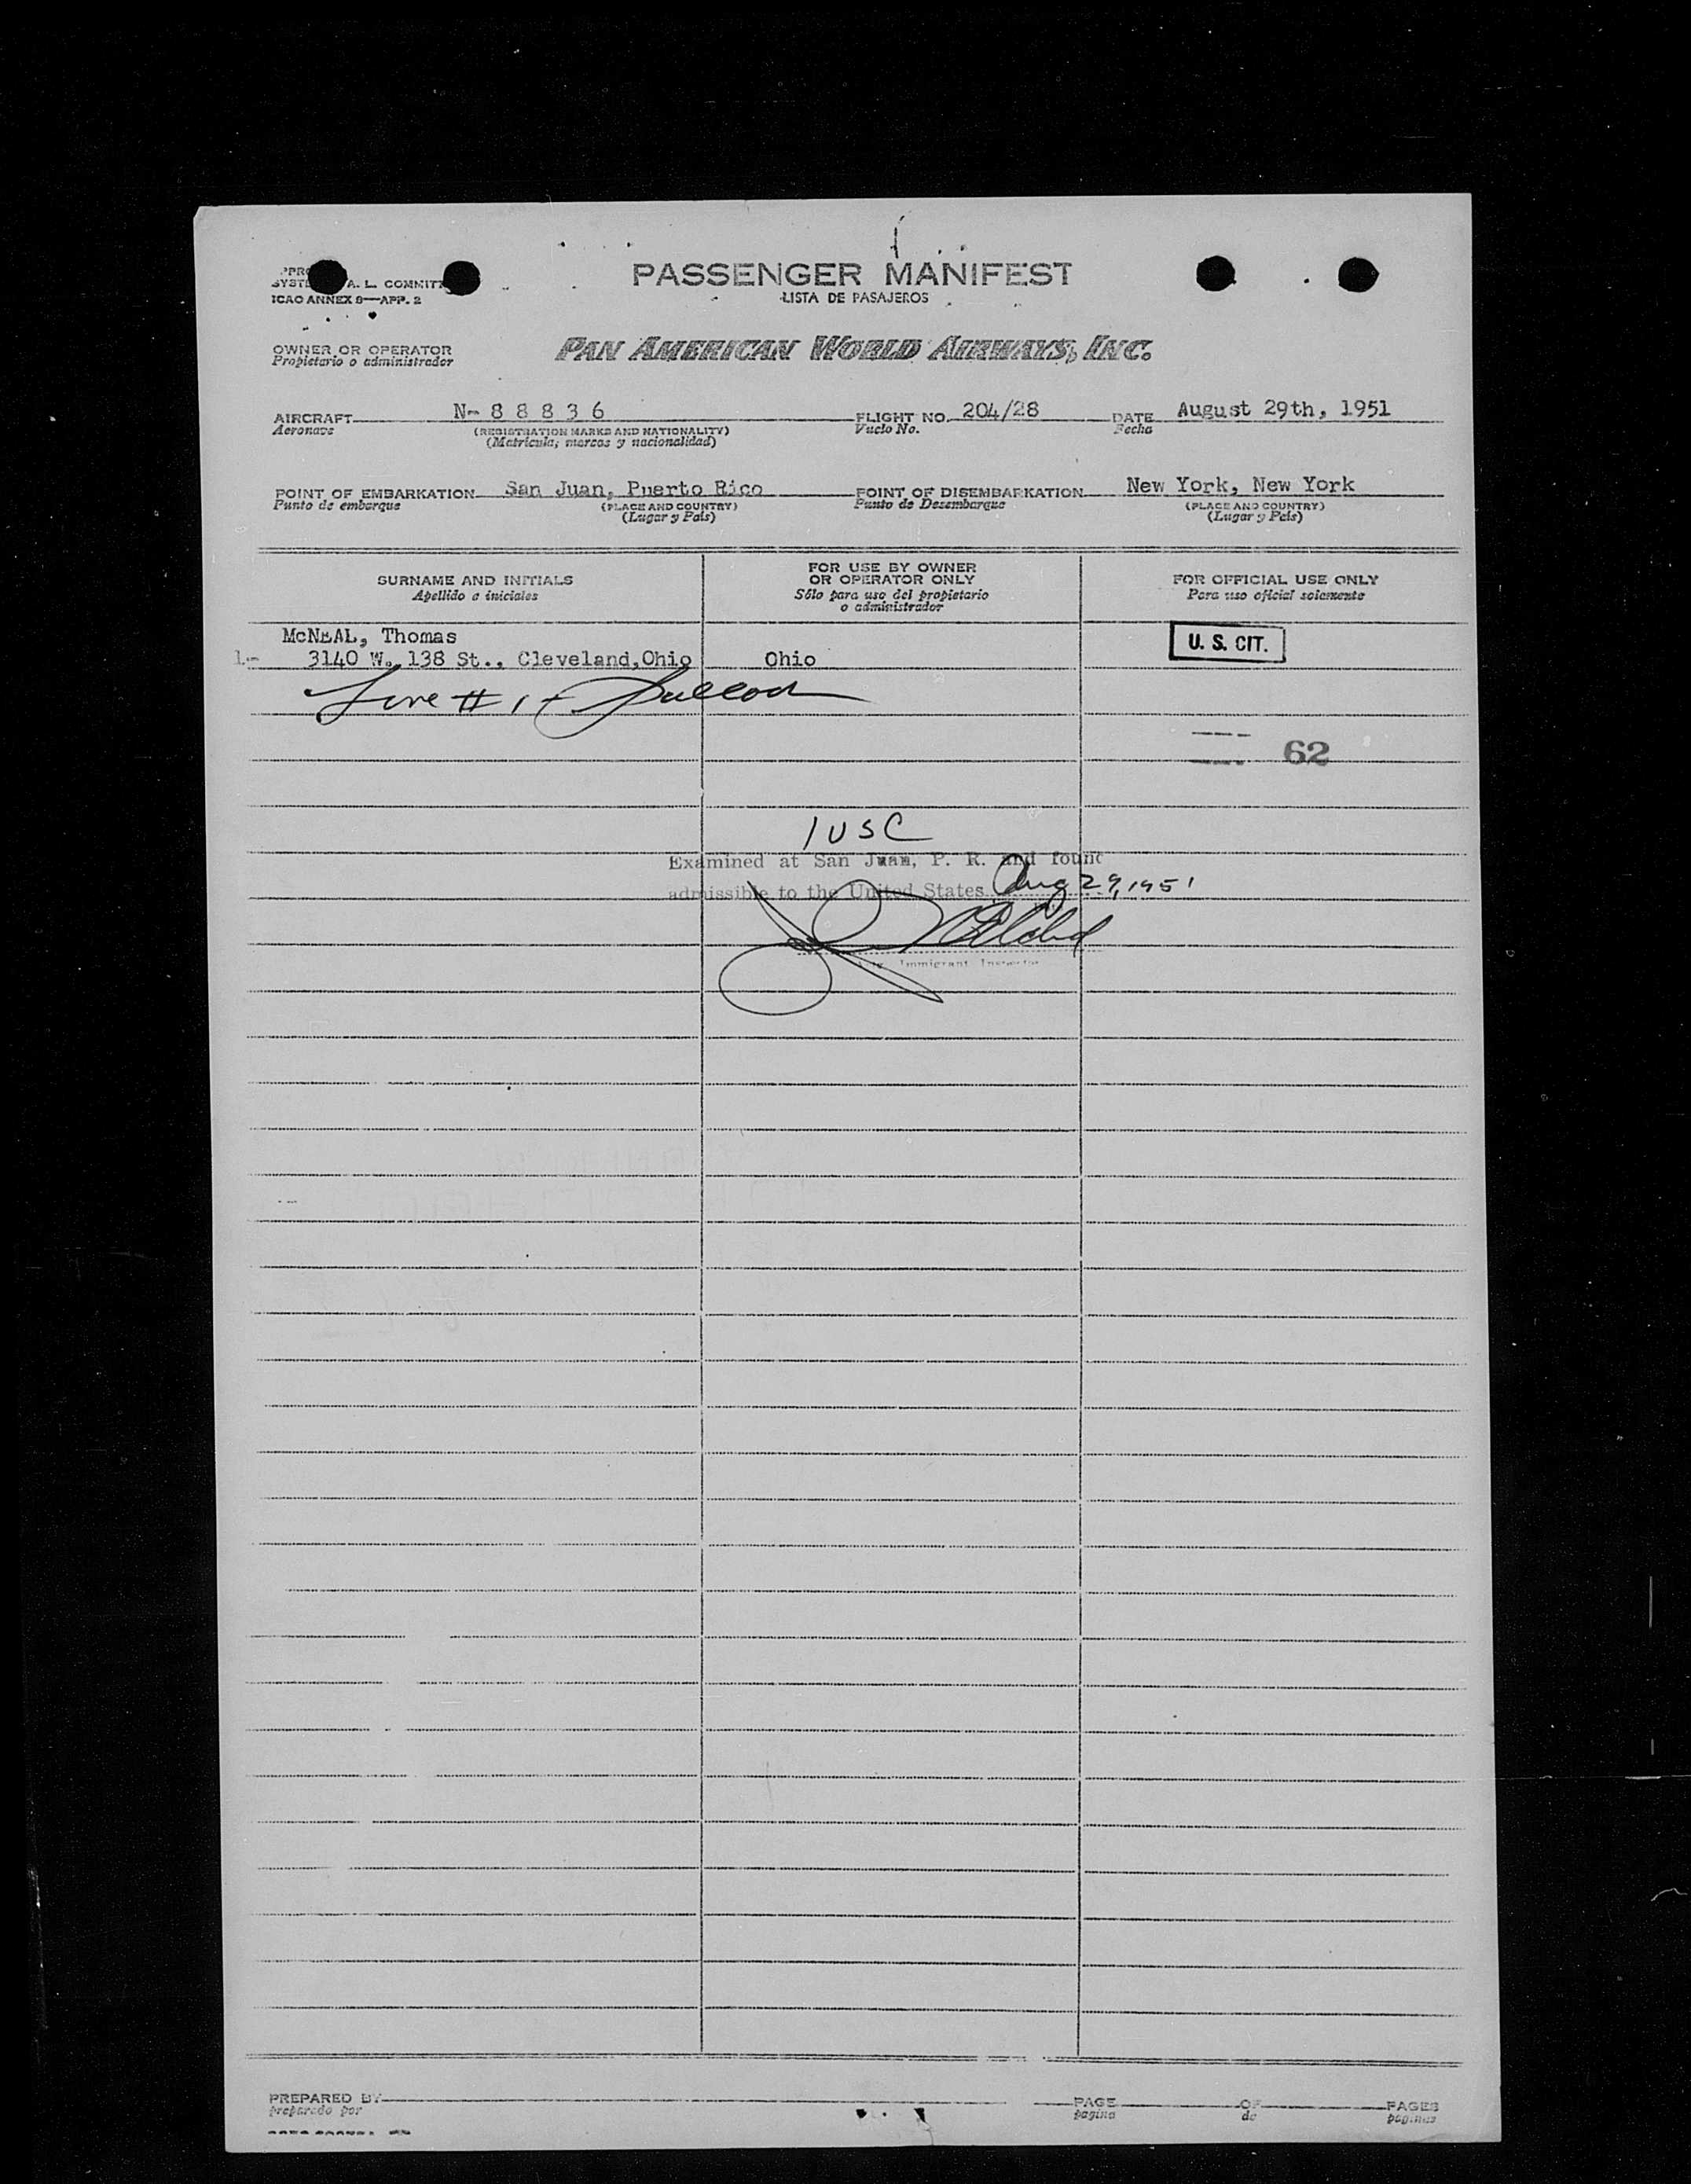 PASSENGER MANIFEST
LISTA DE PASAJEROS
A. L. COMMITT
ICAO ANNEX 9—APP. 2
OWNER OR OPERATOR
Propietario o administrador
PAN AMERICAN WORLD AIRWAYS, INC.
AIRCRAFT N- 8 8 8 3 6 FLIGHT NO. 204/28 DATE August 29th, 1951
Aeronave (REGISTRATION MARKS AND NATIONALITY) Vuelo No. Fecha
(Matricula; marcas y nacionalidad)
POINT OF EMBARKATION San Juan, Puerto Rico POINT OF DISEMBARKATION New York, New York
Punto de embarque (PLACE AND COUNTRY) Punto de Desembarque (PLACE AND COUNTRY)
(Lugar y País) (Lugar y País)
SURNAME AND INITIALS
Apellido e iniciales
FOR USE BY OWNER
OR OPERATOR ONLY
Sólo para uso del propietario
o administrador
FOR OFFICIAL USE ONLY
Para uso oficial solamente
McNEAL, Thomas
1.- 3140 W. 138 St., Cleveland,Ohio Ohio
U. S. CIT.
Line # 1
62
1 USC
Examined at San Juan, P. R. and found
admissible to the United States Aug 29, 1951
Immigrant Inspector
PREPARED BY PAGE OF PAGES
preparado por pagina de paginas